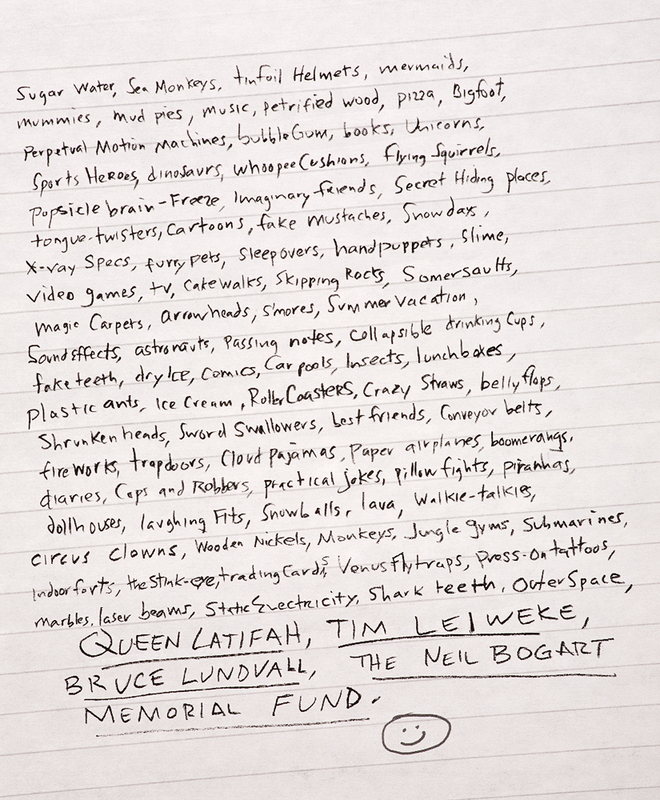 Sugar Water, Sea Monkeys, tinfoil Helmets, mermaids,
mummies, mud pies, music, petrified wood, pizza, Bigfoot,
Perpetual Motion Machines, bubble Gum, books, Unicorns,
Sports Heroes, dinosaurs, whoopee Cushions, flying Squirrels,
popsicle brain-Freeze, Imaginary friends, Secret Hiding places,
tongue-twisters, Cartoons, fake mustaches, Snow days,
X-ray Specs, furry pets, sleepovers, hand puppets, slime,
video games, tv, cake walks, Skipping Rocks, Somersaults,
magic Carpets, arrowheads, s'mores, Summer vacation,
Sound effects, astronauts, Passing notes, collapsible drinking Cups,
fake teeth, dry Ice, Comics, Car pools, Insects, lunchboxes,
plastic ants, Ice Cream, Roller Coasters, Crazy Straws, belly flops,
Shrunken heads, Sword Swallowers, best friends, Conveyor belts,
fireworks, trapdoors, Cloud pajamas, Paper airplanes, boomerangs,
diaries, Cops and Robbers, practical jokes, pillow fights, piranhas,
dollhouses, laughing Fits, Snowballs, lava, Walkie-talkies,
circus clowns, Wooden Nickels, Monkeys, Jungle gyms, Submarines,
Indoor forts, the stink-eye, trading Cards, Venus Flytraps, Press-On tattoos,
marbles, laser beams, Static Electricity, Shark teeth, Outer Space,
QUEEN LATIFAH, TIM LEIWEKE,
BRUCE LUNDVALL, THE NEIL BOGART
MEMORIAL FUND.